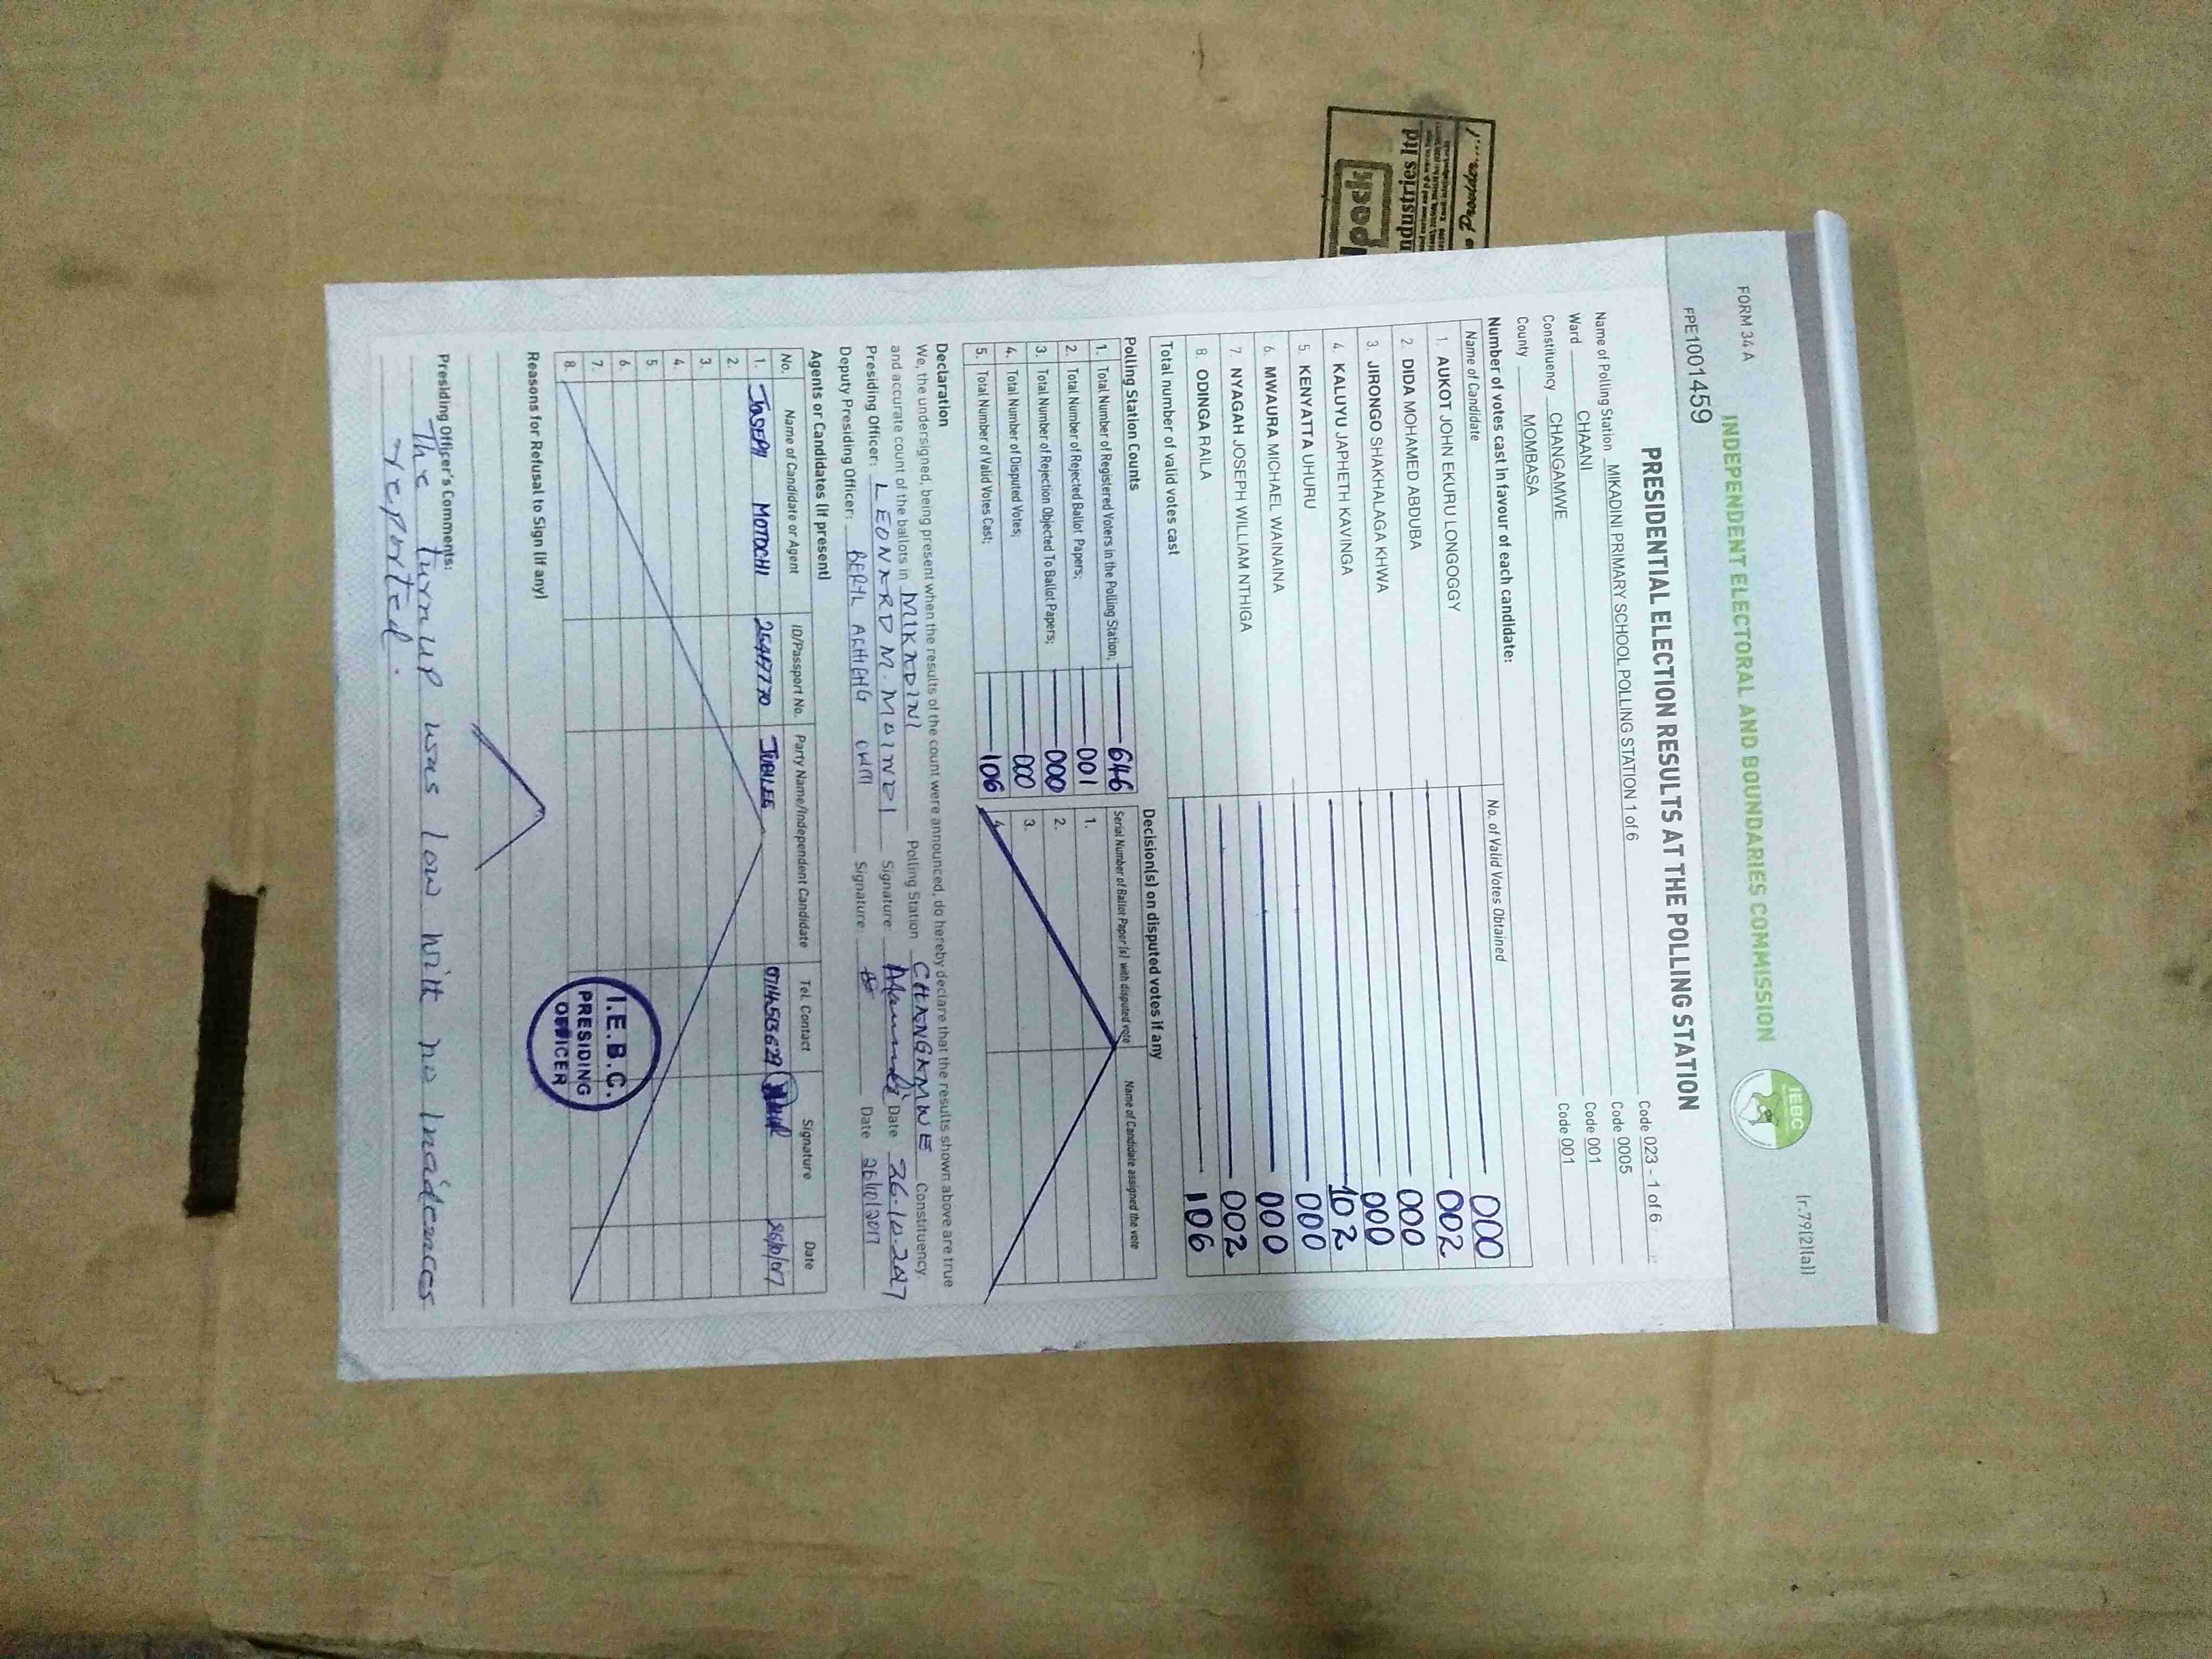 FORM 34A
(r.79(2)(a))
INDEPENDENT ELECTORAL AND BOUNDARIES COMMISSION
IEBC
FPE1001459
PRESIDENTIAL ELECTION RESULTS AT THE POLLING STATION
Name of Polling Station MIKADINI PRIMARY SCHOOL POLLING STATION 1 of 6 Code 023 - 1 of 6
Ward CHAANI Code 0005
Constituency CHANGAMWE Code 001
County MOMBASA Code 001
Number of votes cast in favour of each candidate:
Name of Candidate No. of Valid Votes Obtained
1. AUKOT JOHN EKURU LONGOGGY 000
2. DIDA MOHAMED ABDUBA 002
3. JIRONGO SHAKHALAGA KHWA 000
4. KALUYU JAPHETH KAVINGA 000
5. KENYATTA UHURU 102
6. MWAURA MICHAEL WAINAINA 000
7. NYAGAH JOSEPH WILLIAM NTHIGA 000
8. ODINGA RAILA 002
Total number of valid votes cast 106
Polling Station Counts
1. Total Number of Registered Voters in the Polling Station; 646
2. Total Number of Rejected Ballot Papers; 001
3. Total Number of Rejection Objected To Ballot Papers; 000
4. Total Number of Disputed Votes; 000
5. Total Number of Valid Votes Cast; 106
Decision(s) on disputed votes if any
Serial Number of Ballot Paper (s) with disputed vote Name of Candidate assigned the vote
1.
2.
3.
4.
Declaration
We, the undersigned, being present when the results of the count were announced, do hereby declare that the results shown above are true
and accurate count of the ballots in MIKADINI Polling Station CHANGAMWE Constituency.
Presiding Officer: LEONARD M. MOINDI Signature: Date 26-10-2017
Deputy Presiding Officer: BERYL ACHIENG Signature: Date 26/10/2017
Agents or Candidates (if present)
No. Name of Candidate or Agent ID/Passport No. Party Name/Independent Candidate Tel. Contact Signature Date
1. JOSEPH MOTOCHI 25417770 JUBILEE
2.
3.
4.
5
6.
7.
8.
I.E.B.C.
PRESIDING
OFFICER
Reasons for Refusal to Sign (if any)
Presiding Officer's Comments:
The turnup was low with no incidences
reported.